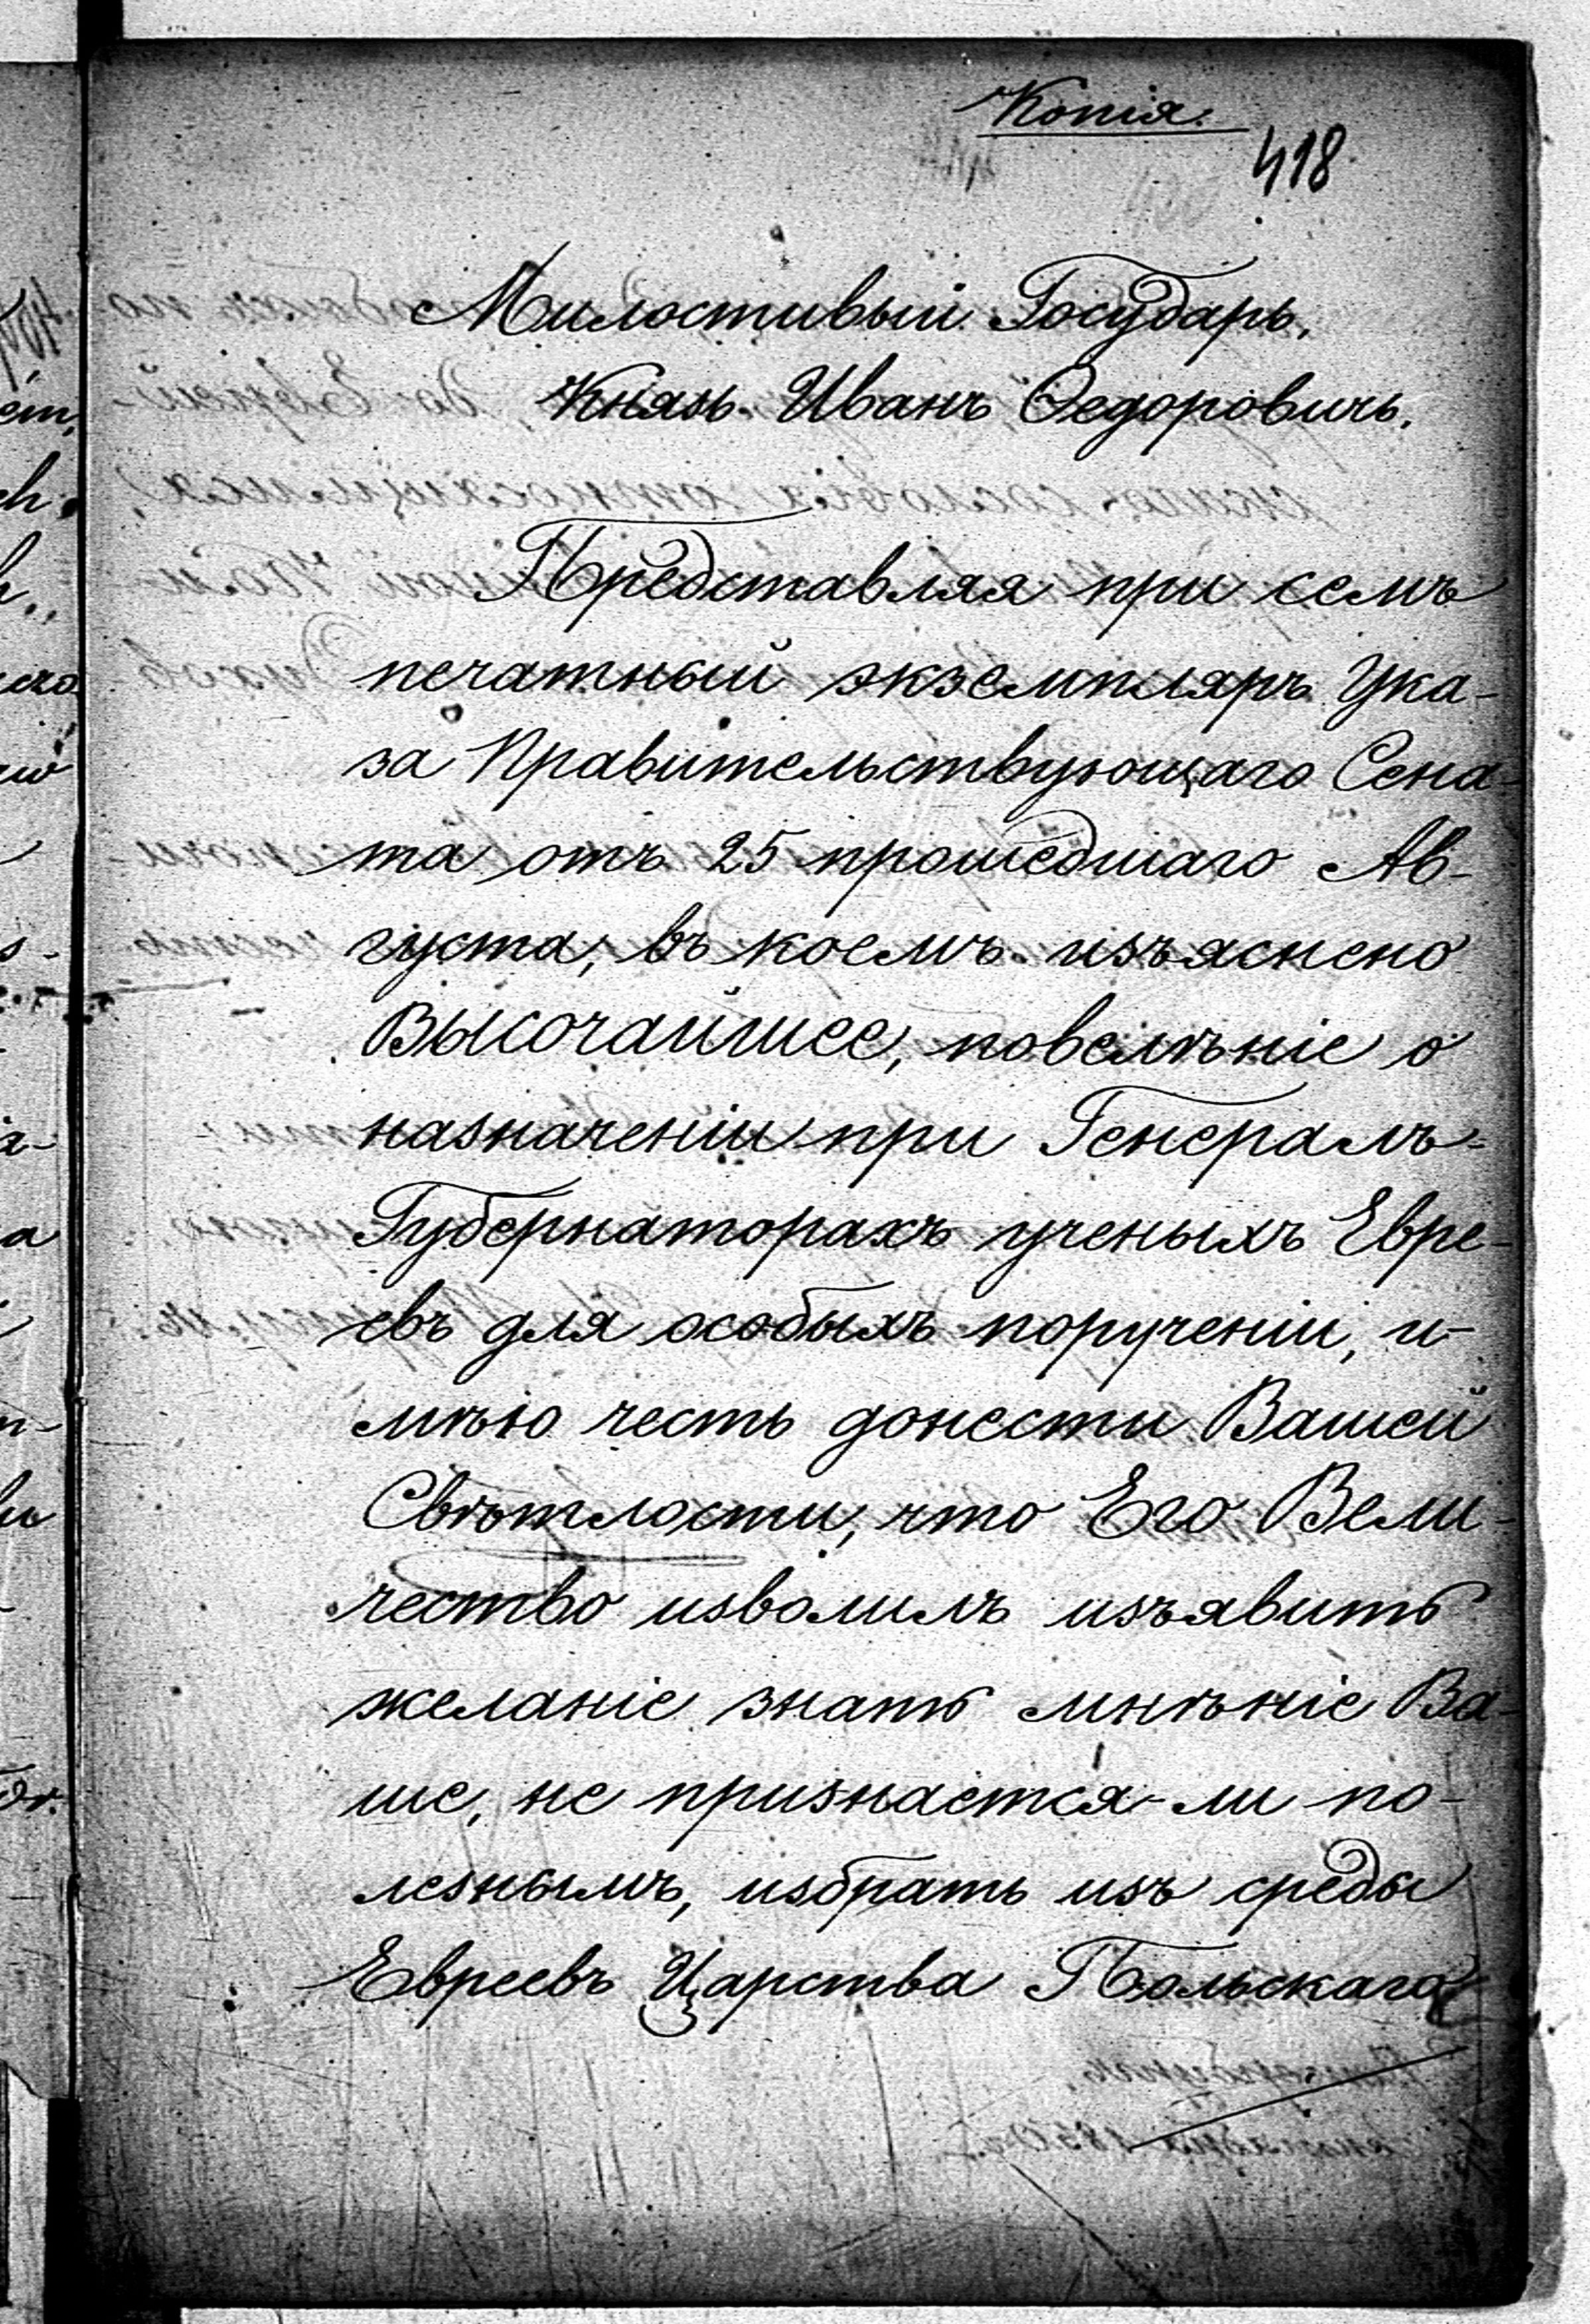 Копія.
418
Милостивый Государь,
Князь Иванъ Ѳедоровичь.
Представляя при семъ
печатный экземпляръ Ука-
за Правительствующаго Сена-
та отъ 25 прошедшаго Ав-
густа, въ коемъ изъяснено
Высочайшее, повелѣніе о
назначеніи при Генералъ-
Губернаторахъ ученыхъ Евре-
евъ для особыхъ порученіи, и-
мѣю честь донести Вашей
Свѣтлости, что Его Вели-
чество изволилъ изъявить
желаніе знать мнѣніе Ва-
ше, не признается-ли по-
лезнымъ, избрать изъ среды
Евреевъ Царства Польскаго